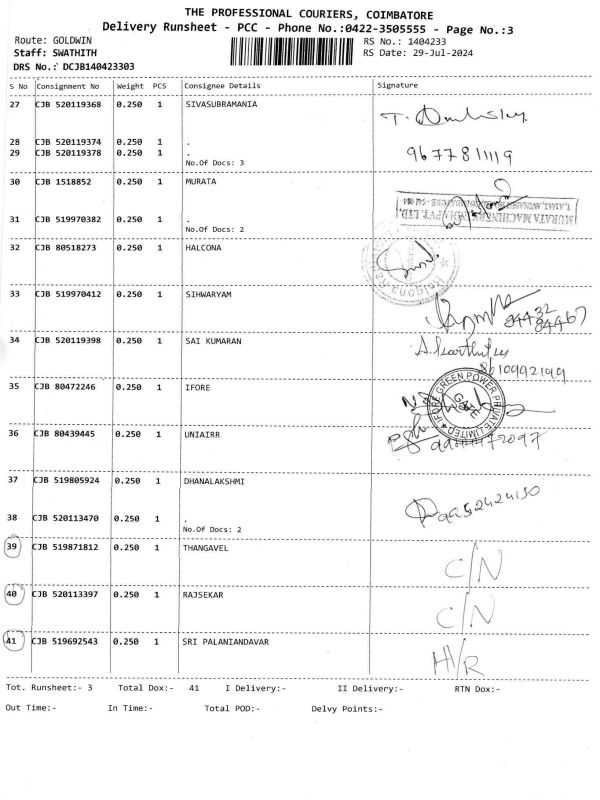 THE PROFESSIONAL COURIERS, COIMBATORE
Delivery Runsheet - PCC - Phone No.:0422-3505555 - Page No.:3
Route: GOLDWIN RS No.: 1404233
Staff: SWATHITH RS Date: 29-Jul-2024
DRS No.: DCJB140423303
S No Consignment No Weight PCS Consignee Details Signature
27 CJB 520119368 0.250 1 SIVASUBRAMANIA
28 CJB 520119374 0.250 1 .
29 CJB 520119378 0.250 1 . 9677811119
No.Of Docs: 3
30 CJB 1518852 0.250 1 MURATA
MURATA MACHINERY INDIA PVT. LTD.
31 CJB 519970382 0.250 1 .
No.Of Docs: 2
32 CJB 80518273 0.250 1 HALCONA
33 CJB 519970412 0.250 1 SIHWARYAM
94432
84467
34 CJB 520119398 0.250 1 SAI KUMARAN
8610992199
35 CJB 80472246 0.250 1 IFORE
IFORE GREEN POWER PRIVATE LIMITED
36 CJB 80439445 0.250 1 UNIAIRR
37 CJB 519805924 0.250 1 DHANALAKSHMI
38 CJB 520113470 0.250 1 .
No.Of Docs: 2
39 CJB 519871812 0.250 1 THANGAVEL C/N
40 CJB 520113397 0.250 1 RAJSEKAR C/N
41 CJB 519692543 0.250 1 SRI PALANIANDAVAR H/R
Tot. Runsheet:- 3 Total Dox:- 41 I Delivery:- II Delivery:- RTN Dox:-
Out Time:- In Time:- Total POD:- Delvy Points:-